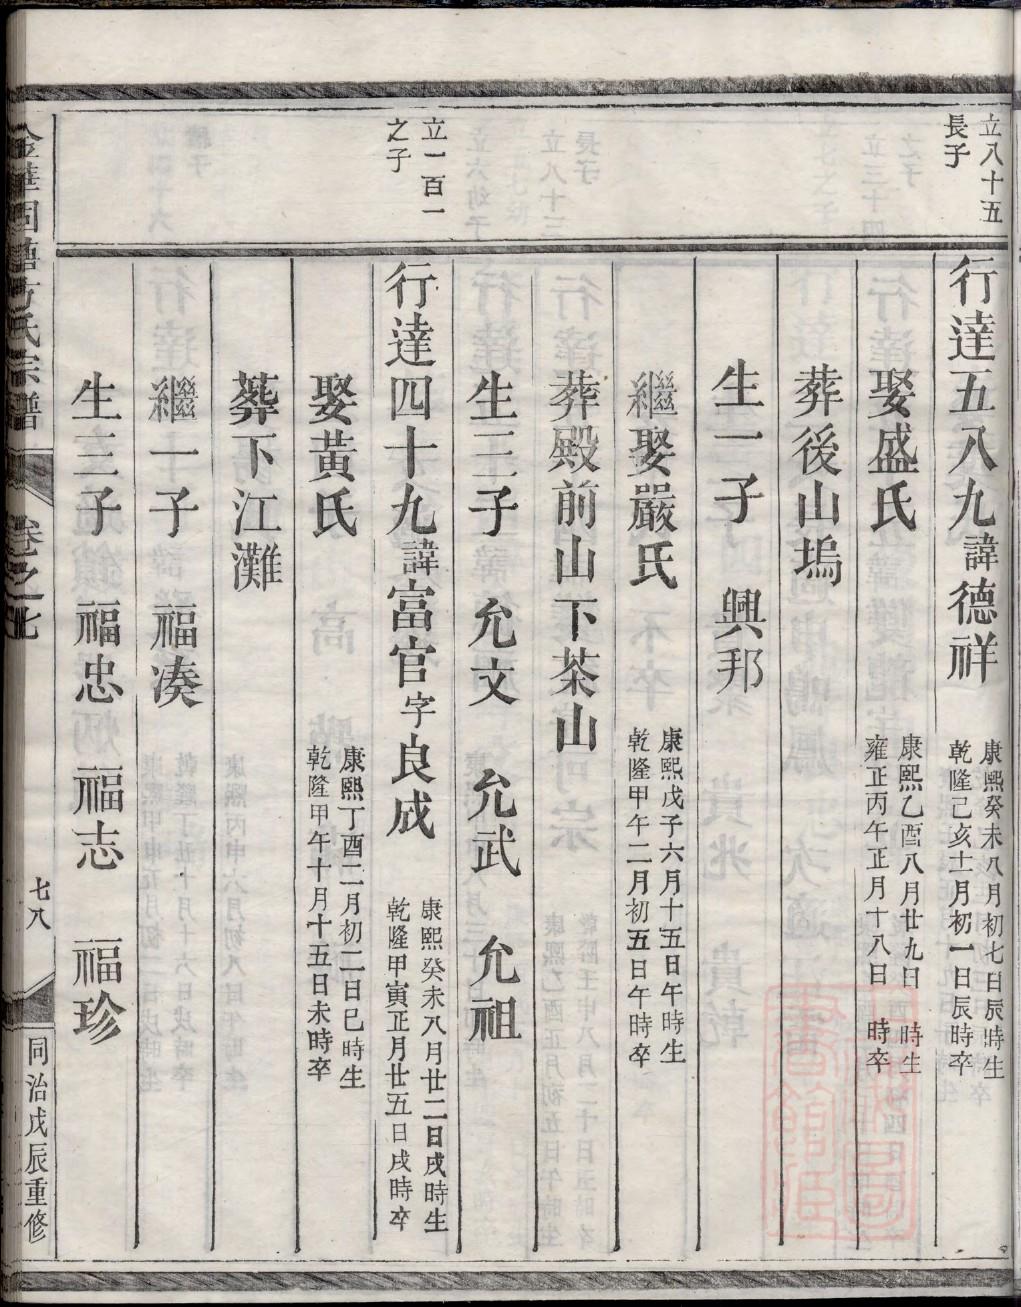 立八十五
長子
行達五八九諱德祥
康熙癸未八月初七日辰時生
乾隆己亥十二月初一日辰時卒
娶盛氏
康熙乙酉八月廿九日 時生
雍正丙午正月十八日 時卒
葬後山塢
生一子 興邦
繼娶嚴氏
康熙戊子六月十五日午時生
乾隆甲午二月初五日午時卒
葬殿前山下茶山
生三子 允文 允武 允祖
立一百一
之子
行達四十九諱富官字良成
康熙癸未八月廿二日戌時生
乾隆甲寅正月廿五日戌時卒
娶黃氏
康熙丁酉二月初二日巳時生
乾隆甲午十月十五日未時卒
葬下江灘
繼一子 福湊
生三子 福忠 福志 福珍
氏宗譜
卷之七
七八
同治戊辰重修